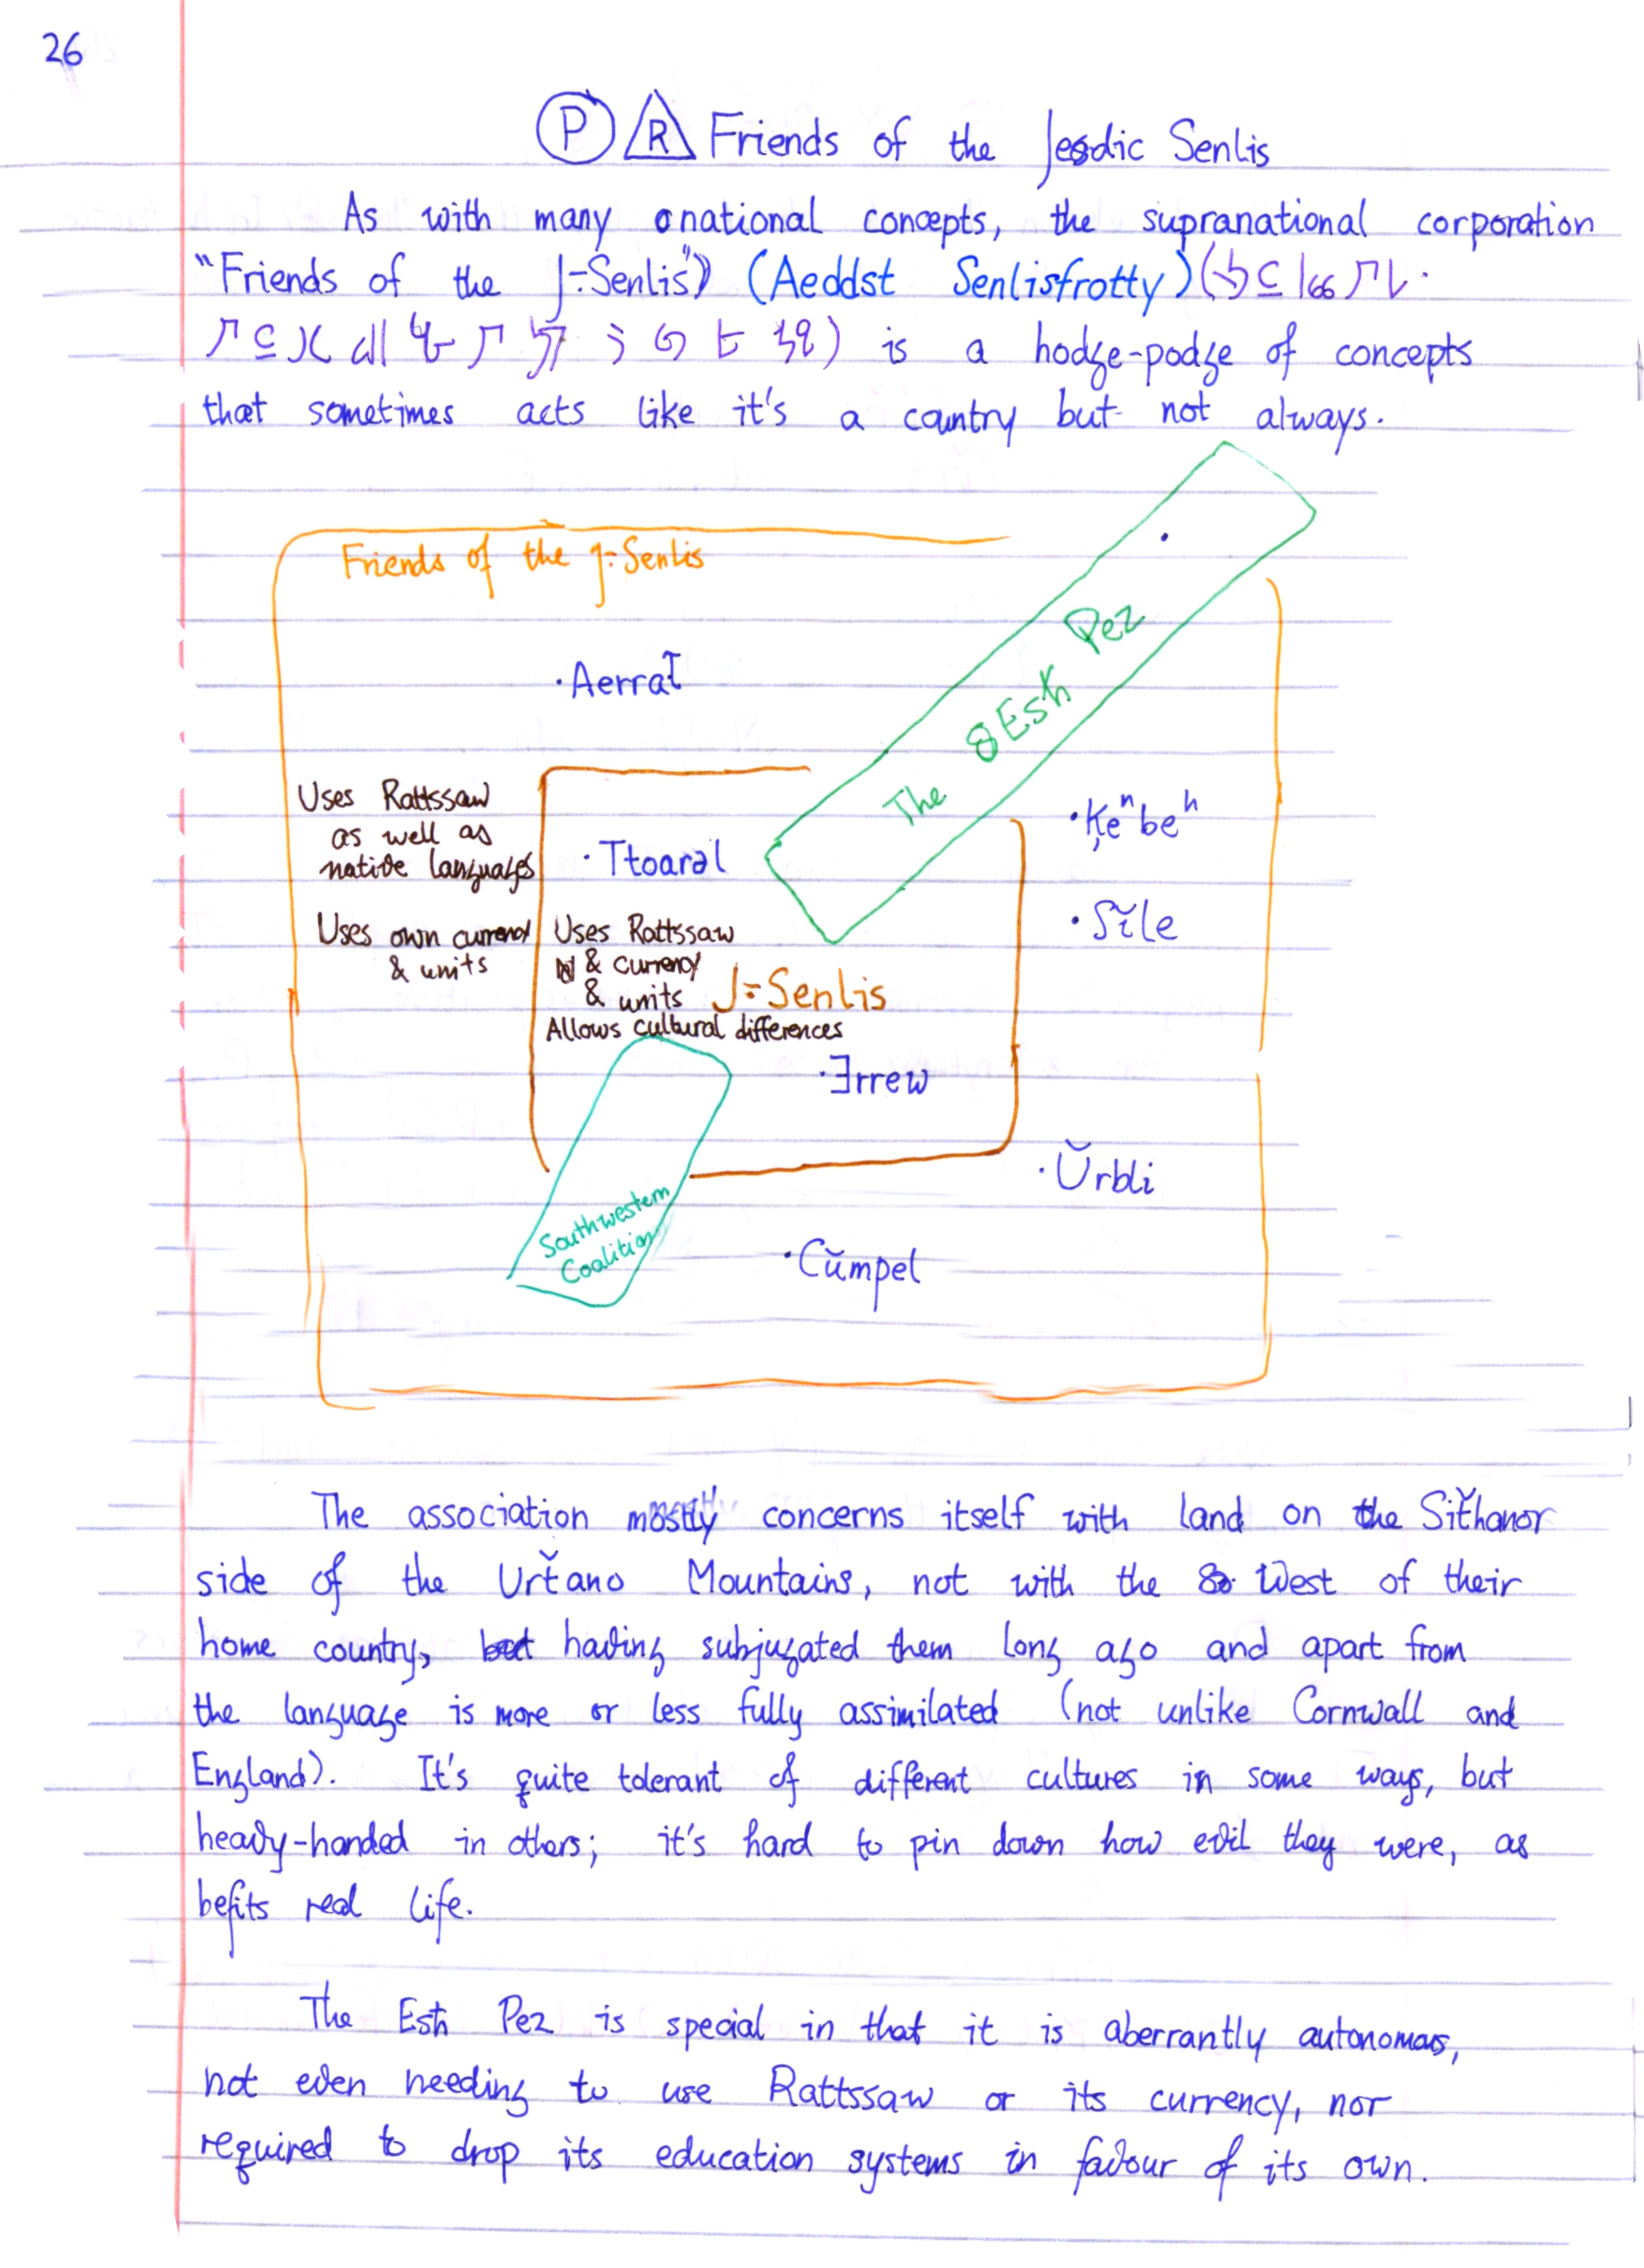 26
P R Friends of the Jesdic Senlis
As with many national concepts, the supranational corporation
"Friends of the J=Senlis" (Aeddst Senlisfrotty) (
) is a hodge-podge of concepts
that sometimes acts like it's a country but not always.
Friends of the J=Senlis
The 8Esħ Pez
·Aerraƚ
Uses Rattssaw
as well as
native languages
Uses own currency
& units
·Ttoaral
Uses Rattssaw
& currency
& units
Allows cultural differences
J=Senlis
·Ǝrrew
·Ķeⁿbeʰ
·Sĭle
·Ŭrbli
Southwestern
Coalition
·Cŭmpel
The association mostly concerns itself with land on the Sit̆hanor
side of the Urt̆ano Mountains, not with the West of their
home country, having subjugated them long ago and apart from
the language is more or less fully assimilated (not unlike Cornwall and
England). It's quite tolerant of different cultures in some ways, but
heavy-handed in others; it's hard to pin down how evil they were, as
befits real life.
The Esħ Pez is special in that it is aberrantly autonomous,
not even needing to use Rattssaw or its currency, nor
required to drop its education systems in favour of its own.